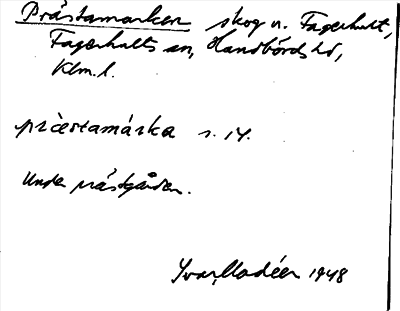 Prästamarken skog n. Fagerhult,
Fagerhults sn, Handbörds hd,
Klm. l.
præstamárka s. 14.
Under prästgården.
Ivar Modéer 1948